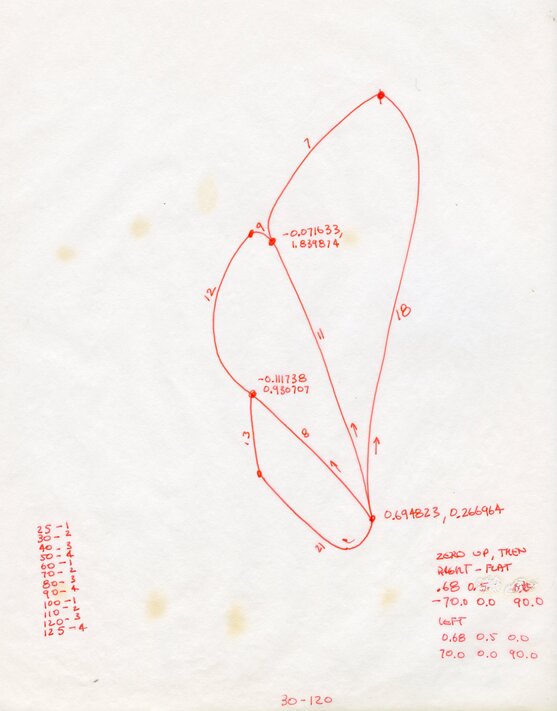 7
9
-0.071633,
1.839814
12
11
18
-0.111738
0.930707
13
8
21
0.694823, 0.266964
25-1
30-2
40-3
50-4
60-1
70-2
80-3
90-4
100-1
110-2
120-3
125-4
ZERO UP, THEN
RIGHT - FLAT
.68 0.5
-70.0 0.0 90.0
LEFT
0.68 0.5 0.0
70.0 0.0 90.0
30-120